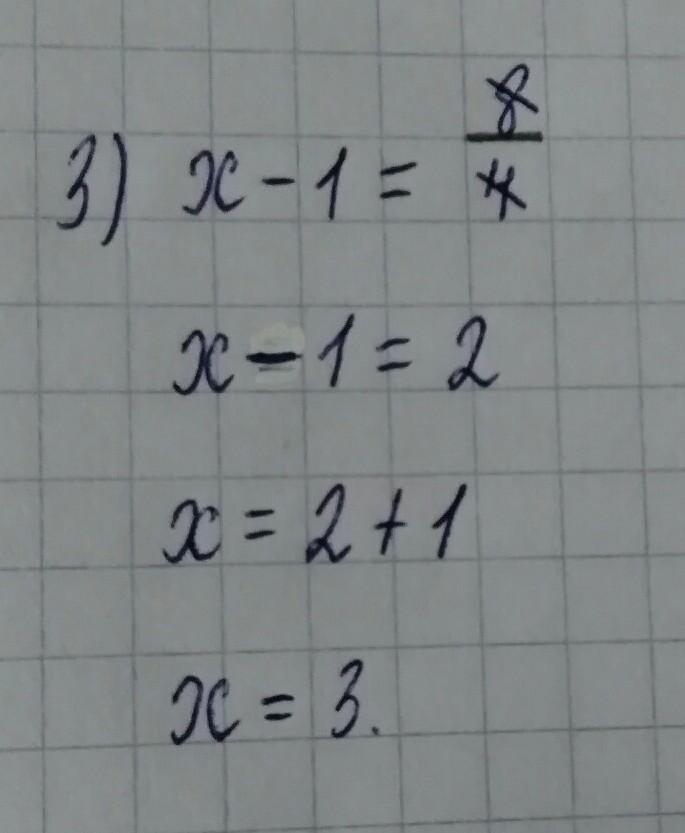 3) x - 1 = 8/4
x - 1 = 2
x = 2 + 1
x = 3.